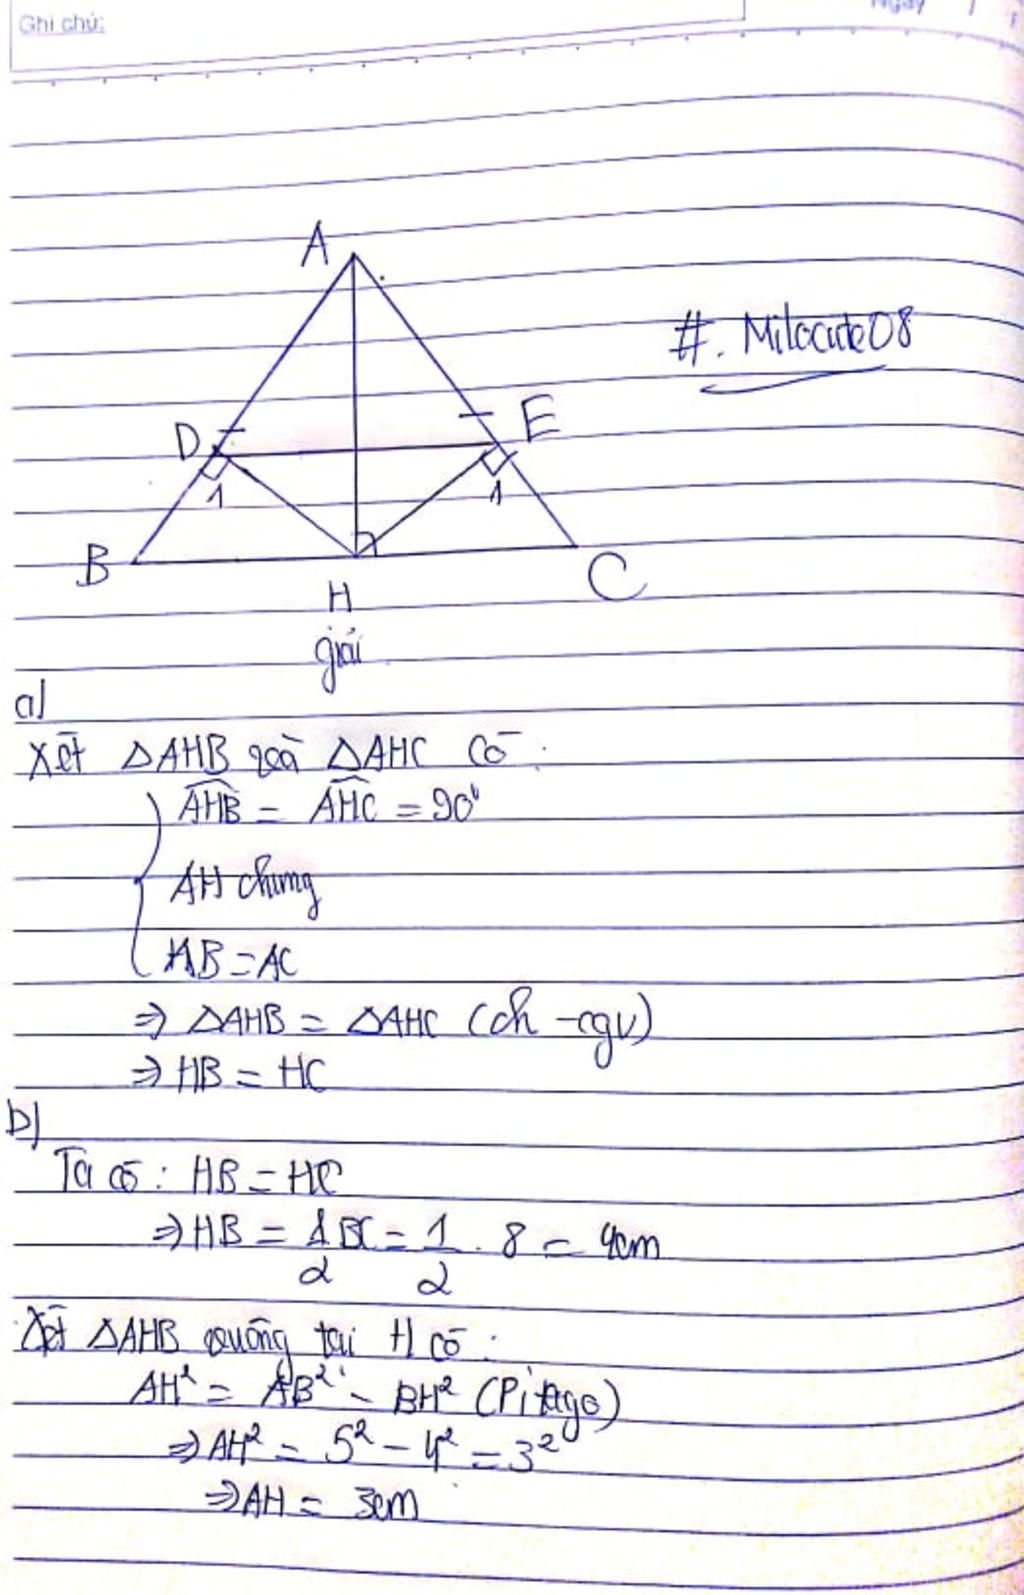 Ghi chú:
Ngày
A
#. Milocute08
D
E
1
1
B
C
H
giải
a)
Xét ΔAHB và ΔAHC có:
AHB = AHC = 90°
AH chung
AB = AC
⇒ ΔAHB = ΔAHC (ch - cgv)
⇒ HB = HC
b)
Ta có: HB = HC
⇒ HB = 1/2 BC = 1/2 . 8 = 4cm
Xét ΔAHB vuông tại H có:
AH² = AB² - BH² (Pitago)
⇒ AH² = 5² - 4² = 3²
⇒ AH = 3cm